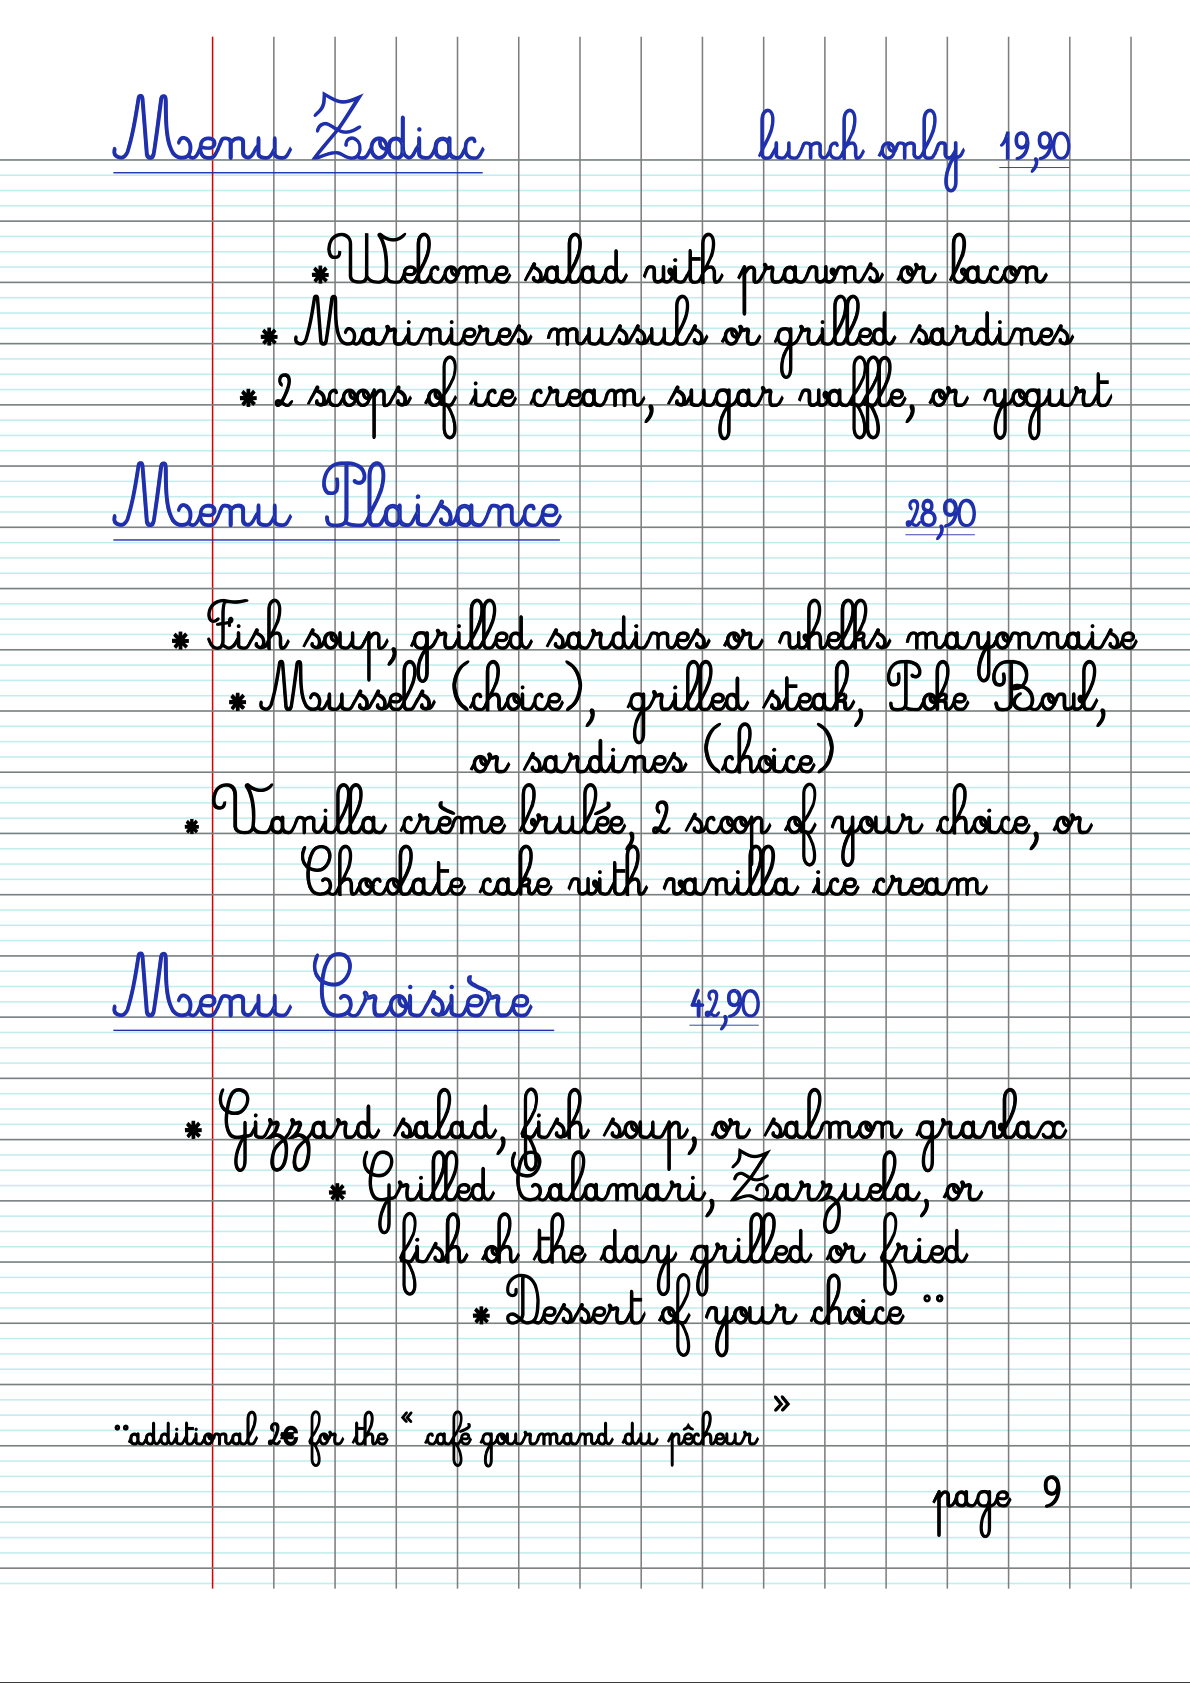 Menu Zodiac lunch only 19,90
* Welcome salad with prawns or bacon
* Marinieres mussuls or grilled sardines
* 2 scoops of ice cream, sugar waffle, or yogurt
Menu Plaisance 28,90
* Fish soup, grilled sardines or whelks mayonnaise
* Mussels (choice), grilled steak, Poke Bowl,
or sardines (choice)
* Vanilla crème brulée, 2 scoop of your choice, or
Chocolate cake with vanilla ice cream
Menu Croisière 42,90
* Gizzard salad, fish soup, or salmon gravlax
* Grilled Calamari, Zarzuela, or
fish oh the day grilled or fried
* Dessert of your choice °°
¨additional 2€ for the « café gourmand du pêcheur »
page 9